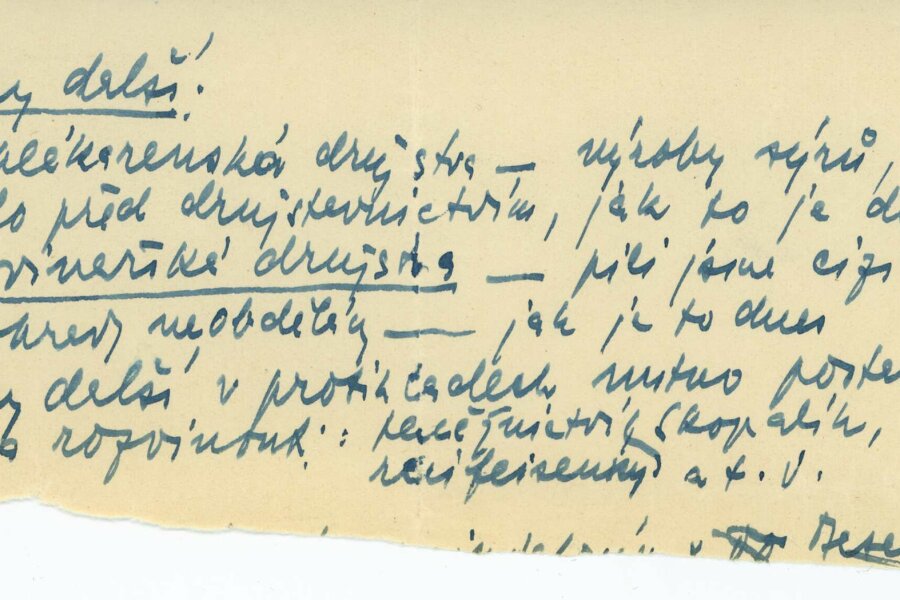 y další:
lékarenská družstva — výroby sýrů,
lo před družstevnictvím, jak to je d
vinařská družstva — pili jsme cizí
neobdělány — jak je to dnes
y další v protikladech nutno poste
rozvinout: peněžnictví (Skopalík,
reiffeisenky) a t. d.